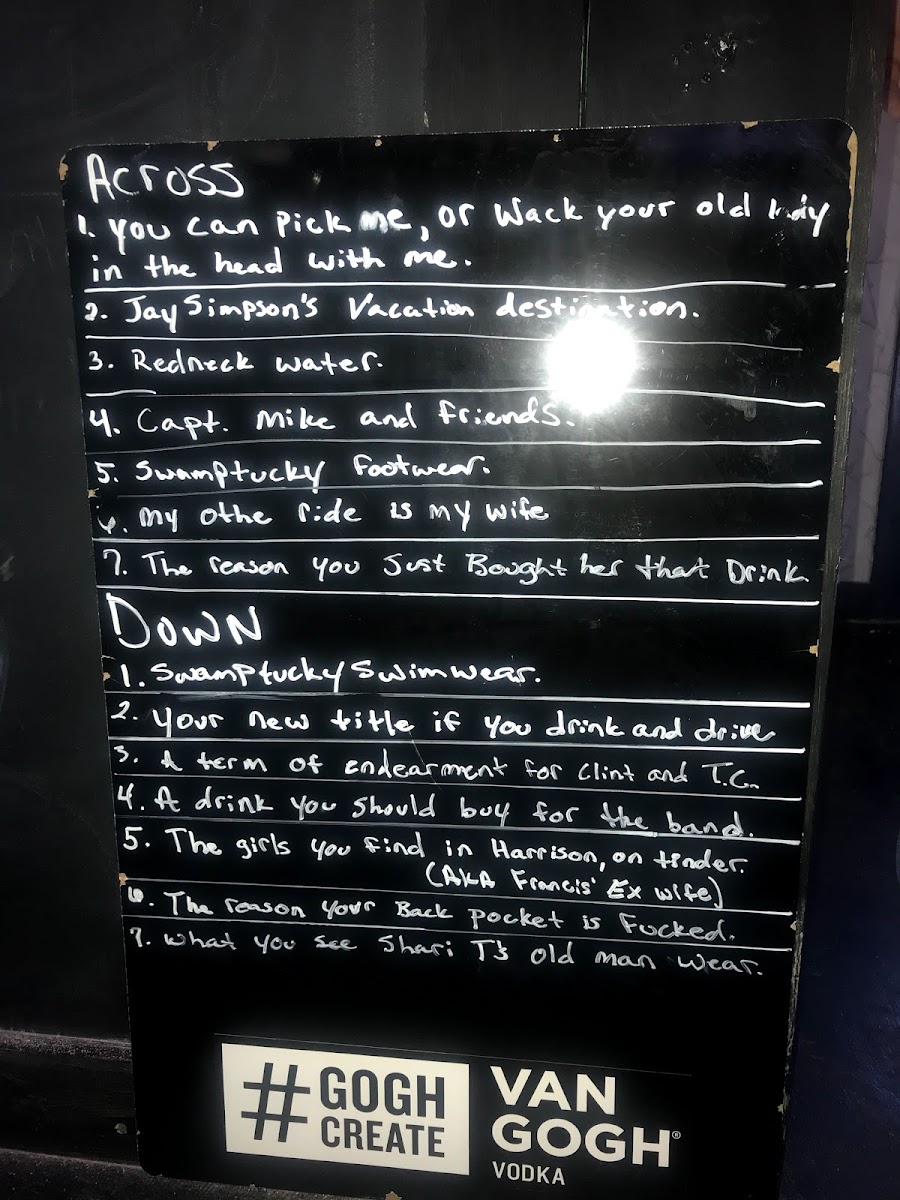 Across
1. you can pick me, or wack your old lady
in the head with me.
2. Jay Simpson's Vacation destination.
3. Redneck water.
4. Capt. Mike and friends.
5. Swamptucky footwear.
6. my othe ride is my wife
7. The reason you Just Bought her that Drink.
Down
1. Swamptucky Swimwear.
2. your new title if you drink and drive
3. A term of endearment for Clint and T.C.
4. A drink you should buy for the band.
5. The girls you find in Harrison, on tinder.
(AKA Francis' Ex wife)
6. The reason your Back pocket is Fucked.
7. what you see Shari T's old man wear.
#GOGH
CREATE
VAN
GOGH®
VODKA